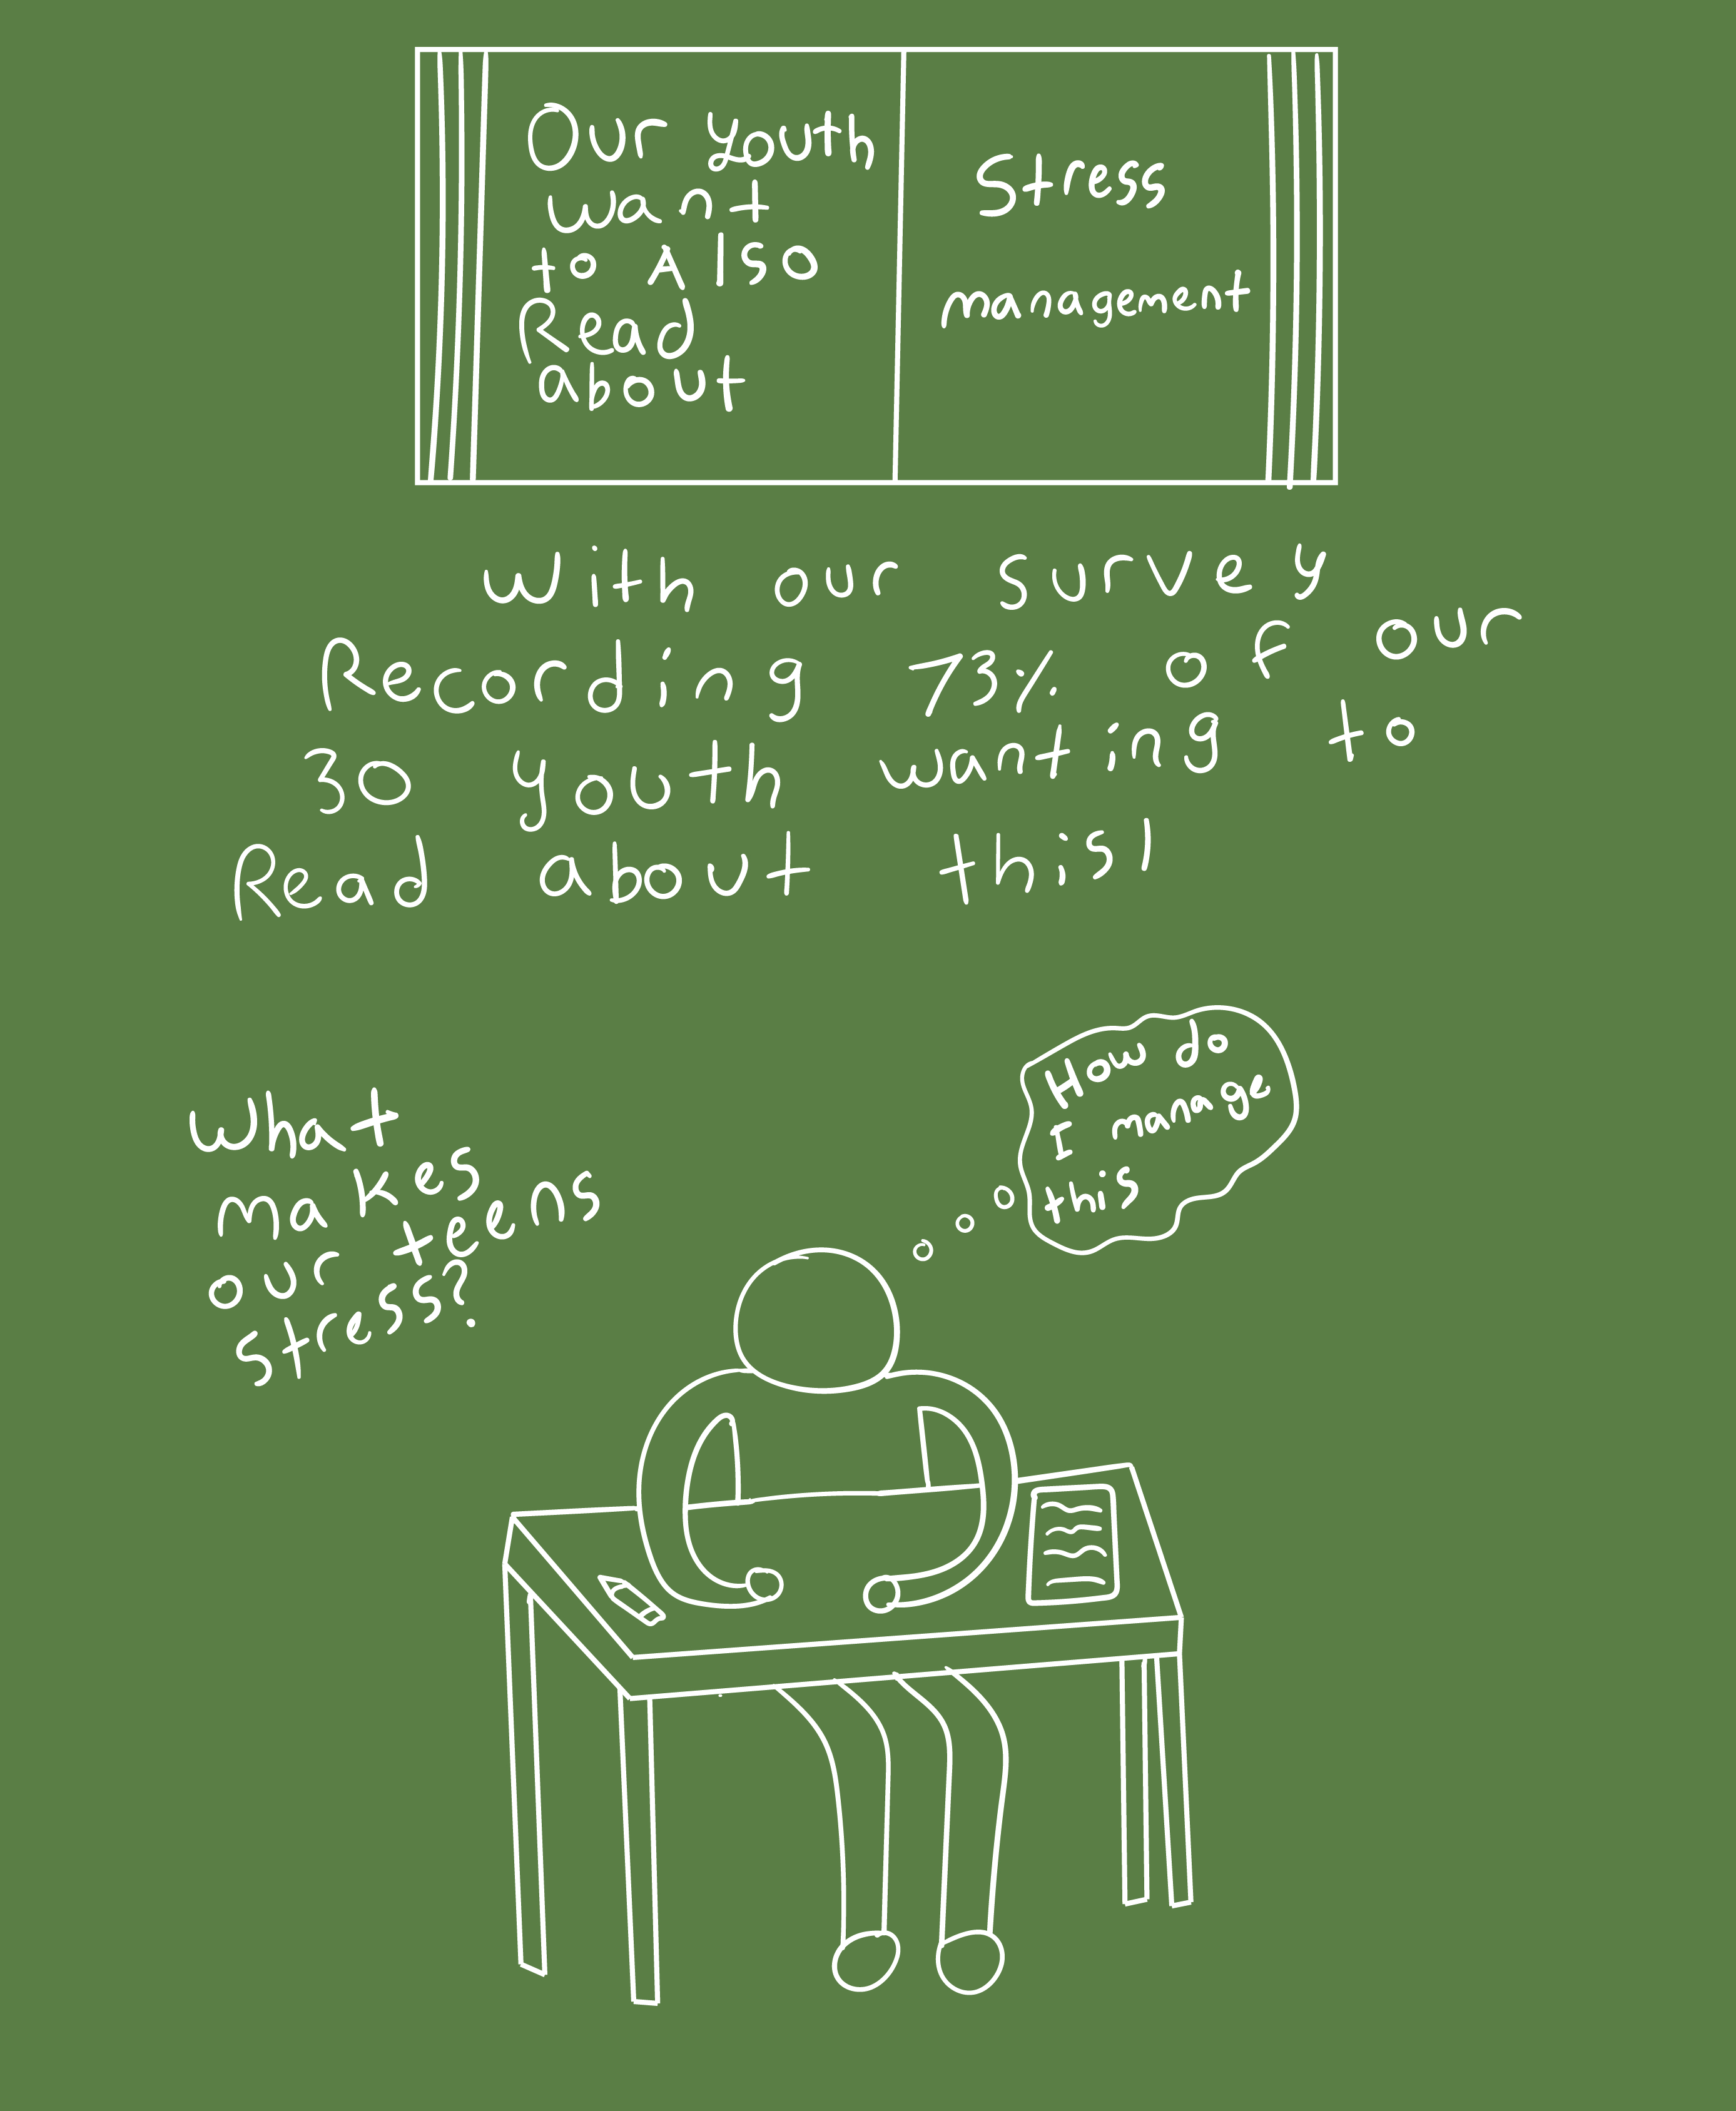 Our youth
want
to Also
Read
about
Stress
management
With our survey
Recording 73% of our
30 youth wanting to
Read about this!
What
makes
our teens
stress?
How do
I manage
this